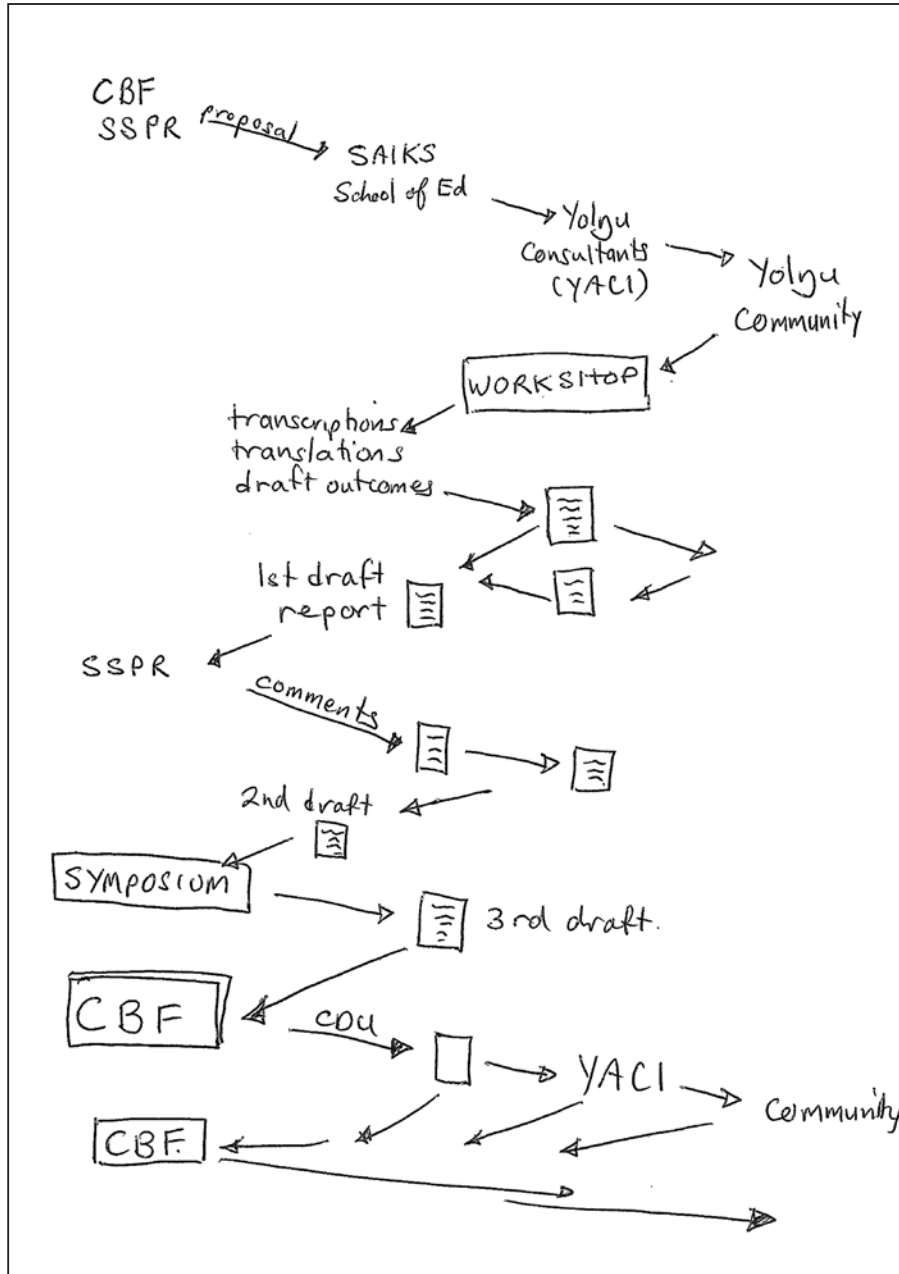 CBF
SSPR
proposal
SAIKS
School of Ed
Yolŋu
Consultants
(YACI)
Yolŋu
Community
WORKSHOP
transcriptions
translations
draft outcomes
1st draft
report
SSPR
comments
2nd draft
SYMPOSIUM
3rd draft.
CBF
CDU
YACI
Community
CBF.